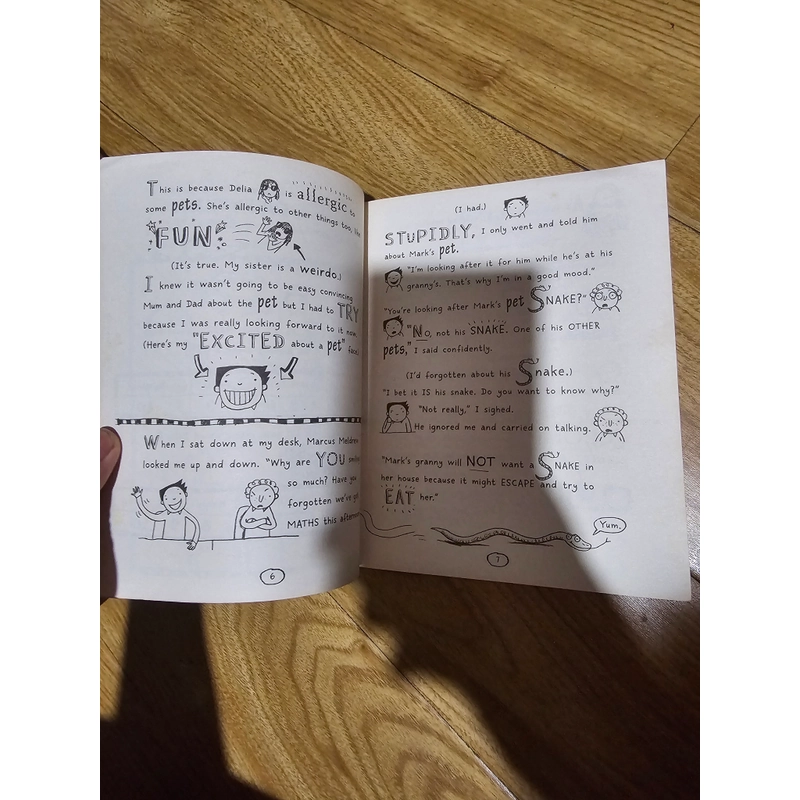 This is because Delia is allergic to
some pets. She's allergic to other things too, like
FUN
(It's true. My sister is a weirdo.)
I knew it wasn't going to be easy convincing
Mum and Dad about the pet but I had to TRY
because I was really looking forward to it now.
(Here's my "EXCITED about a pet" face)
When I sat down at my desk, Marcus Meldrew
looked me up and down. "Why are YOU
so much? Have you
forgotten we've got
MATHS this afternoon
6
(I had.)
STUPIDLY, I only went and told him
about Mark's pet.
"I'm looking after it for him while he's at his
granny's. That's why I'm in a good mood."
"You're looking after Mark's pet SNAKE?"
"No, not his SNAKE. One of his OTHER
pets," I said confidently.
(I'd forgotten about his Snake.)
"I bet it IS his snake. Do you want to know why?"
"Not really," I sighed.
He ignored me and carried on talking.
"Mark's granny will NOT want a SNAKE in
her house because it might ESCAPE and try to
EAT her."
Yum.
7